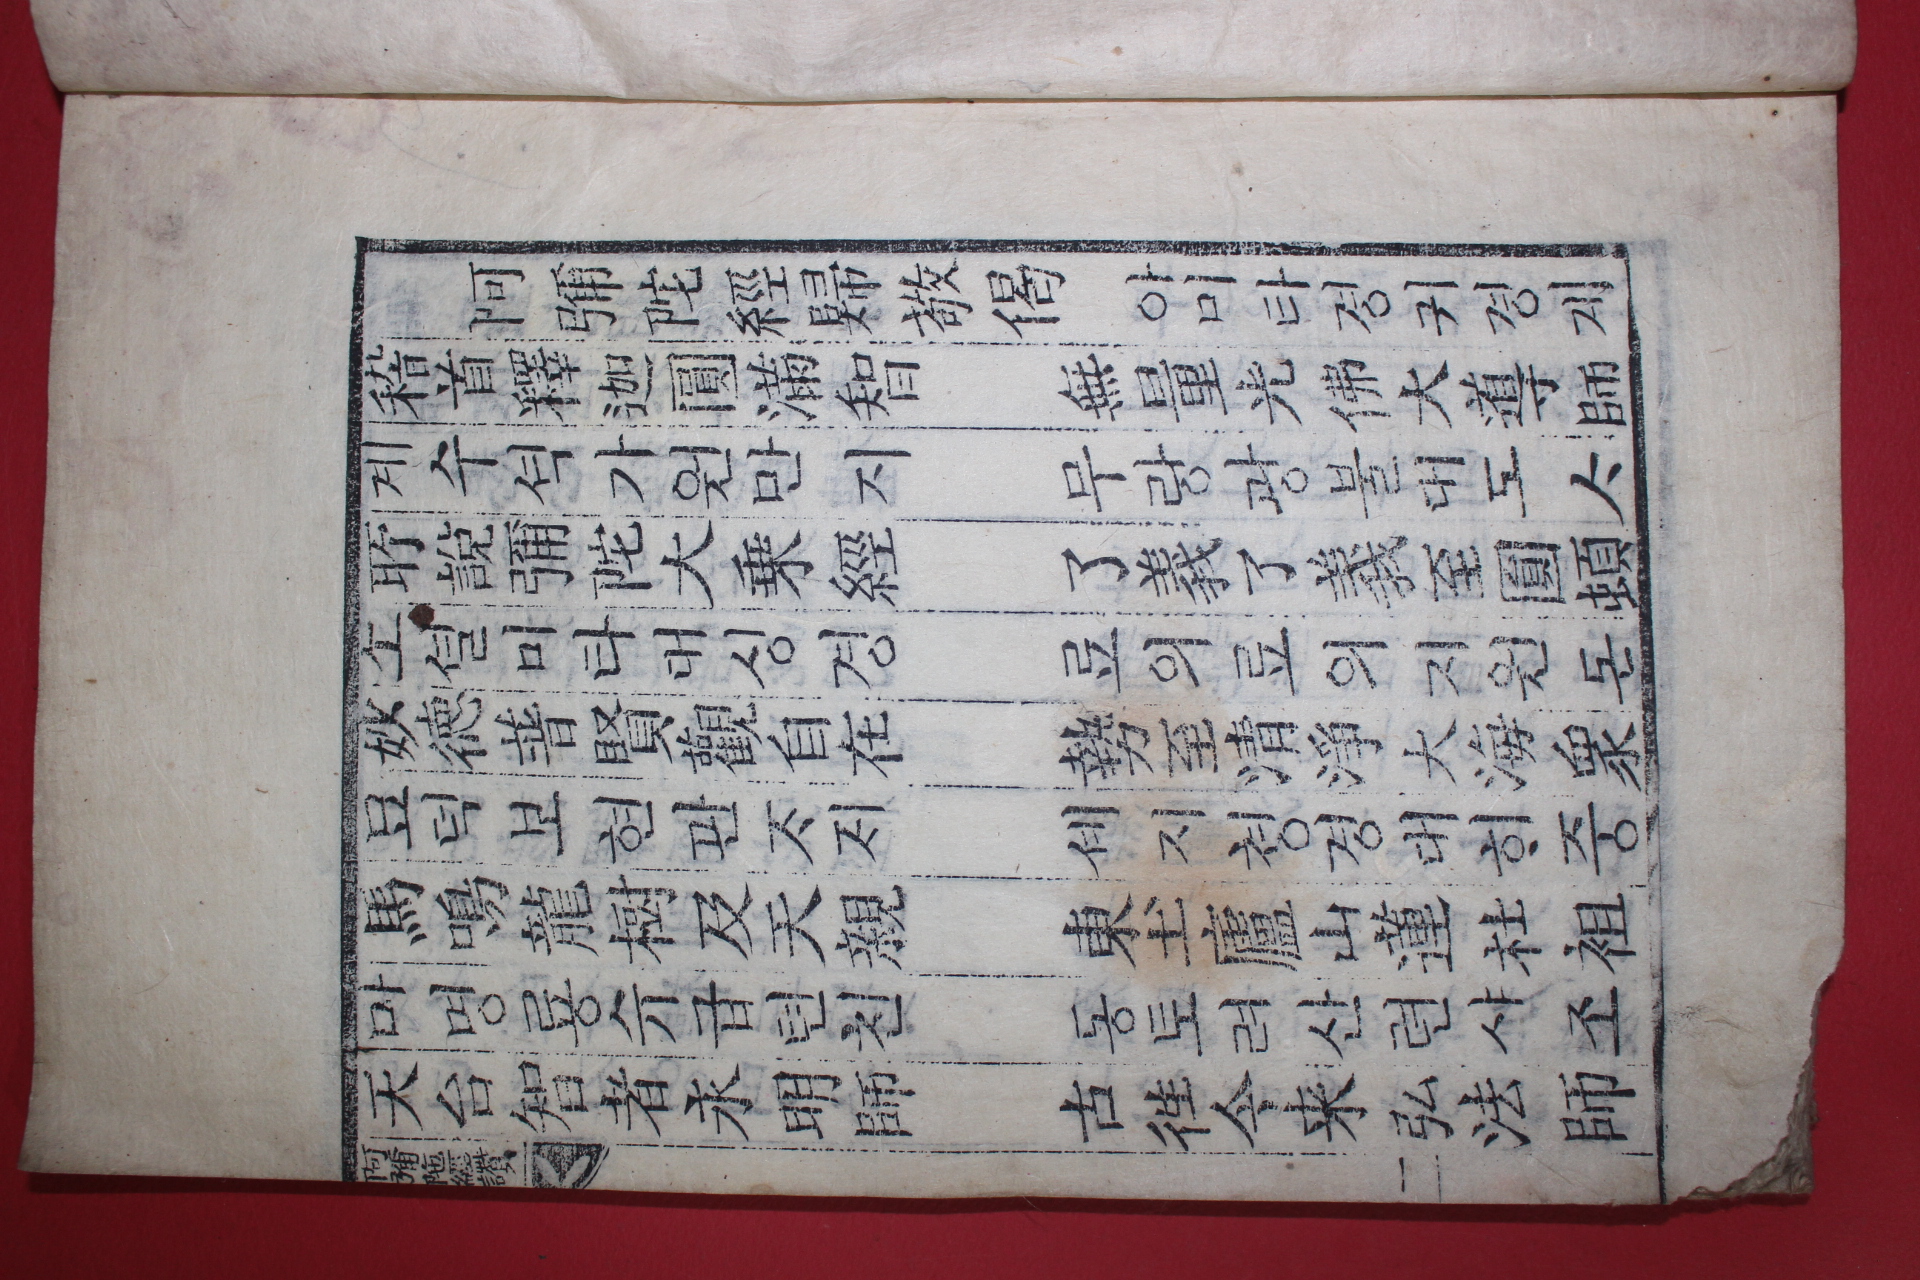 阿彌陀經歸敬偈 아미타경귀경게
稽首釋迦圓滿智 無量光佛大導師
계수셕가원만지 무량광불대도ᄉ
所說彌陀大乗經 了義了義至圓頓
소셜미타대싱경 료의료의지원돈
妙德普賢觀自在 勢至清淨大海衆
묘덕보현관ᄌ지 셰지청경대히중
馬鳴龍樹及天親 東土廬山蓮社祖
마명룡수급텬친 동토려산련사조
天台智者永明師 古徃今来弘法師
阿彌陀經讃 二